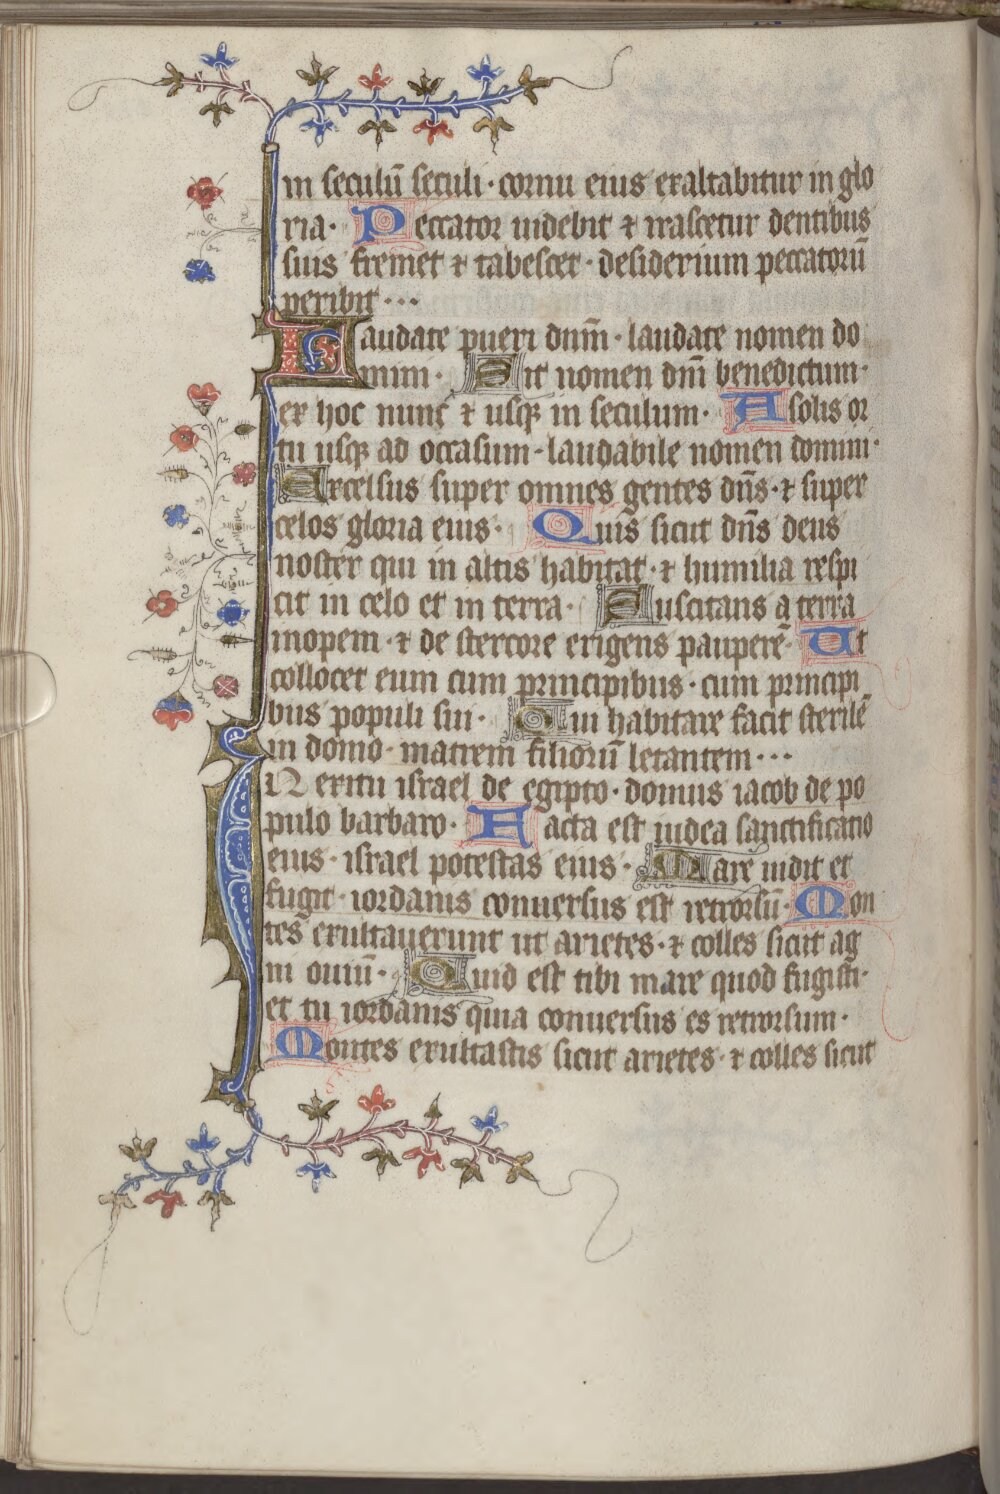 in seculū seculi · cornu eius exaltabitur in glo
ria · Peccator uidebit ⁊ irascetur dentibus
suis fremet ⁊ tabescet · desiderium peccatorū
peribit · · ·
Laudate pueri dnm̄ · laudate nomen do
mini · Sit nomen dnī benedictum ·
ex hoc nunc ⁊ usqꝫ in seculum · A solis or
tu usqꝫ ad occasum · laudabile nomen domini ·
Excelsus super omnes gentes dn̄s · ⁊ super
celos gloria eius · Quis sicut dn̄s deus
noster qui in altis habitat · ⁊ humilia respi
cit in celo et in terra · Suscitans a terra
inopem · ⁊ de stercore erigens pauperē · Ut
collocet eum cum principibus · cum principi
bus populi sui · Qui habitare facit sterilē
in domo · matrem filiorū letantem · · ·
IN exitu israel de egipto · domus iacob de po
pulo barbaro · Facta est iudea sanctificatio
eius · israel potestas eius · Mare uidit et
fugit · iordanis conuersus est retrorsū · Mon
tes exultauerunt ut arietes · ⁊ colles sicut ag
ni ouiū · Quid est tibi mare quod fugisti ·
et tu iordanis quia conuersus es retrorsum ·
Montes exultastis sicut arietes · ⁊ colles sicut